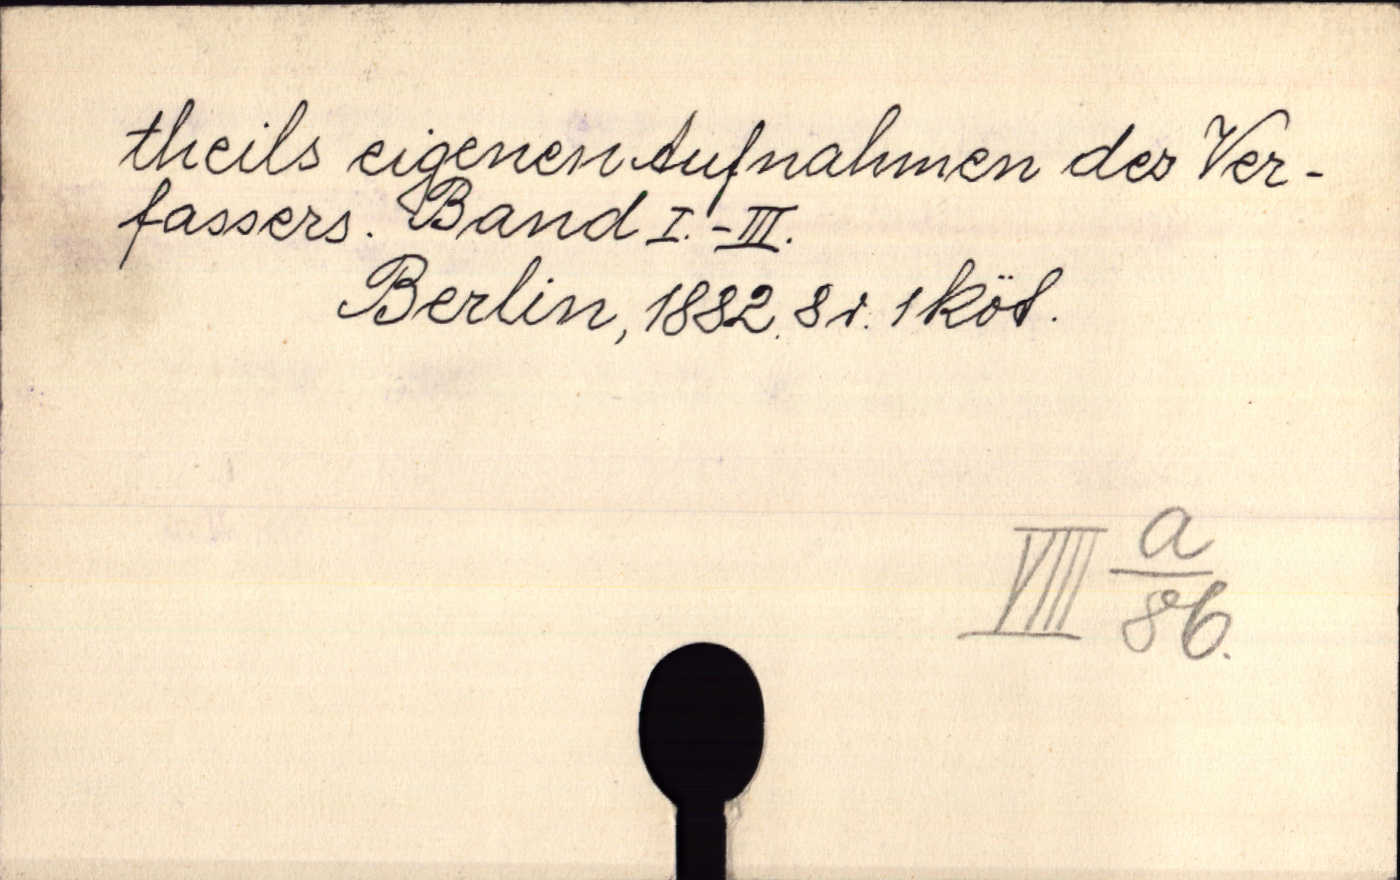 theils eigenen Aufnahmen des Ver-
fassers. Band I.-III.
Berlin, 1882. 8 r. 1 köt.
VIII a/86.